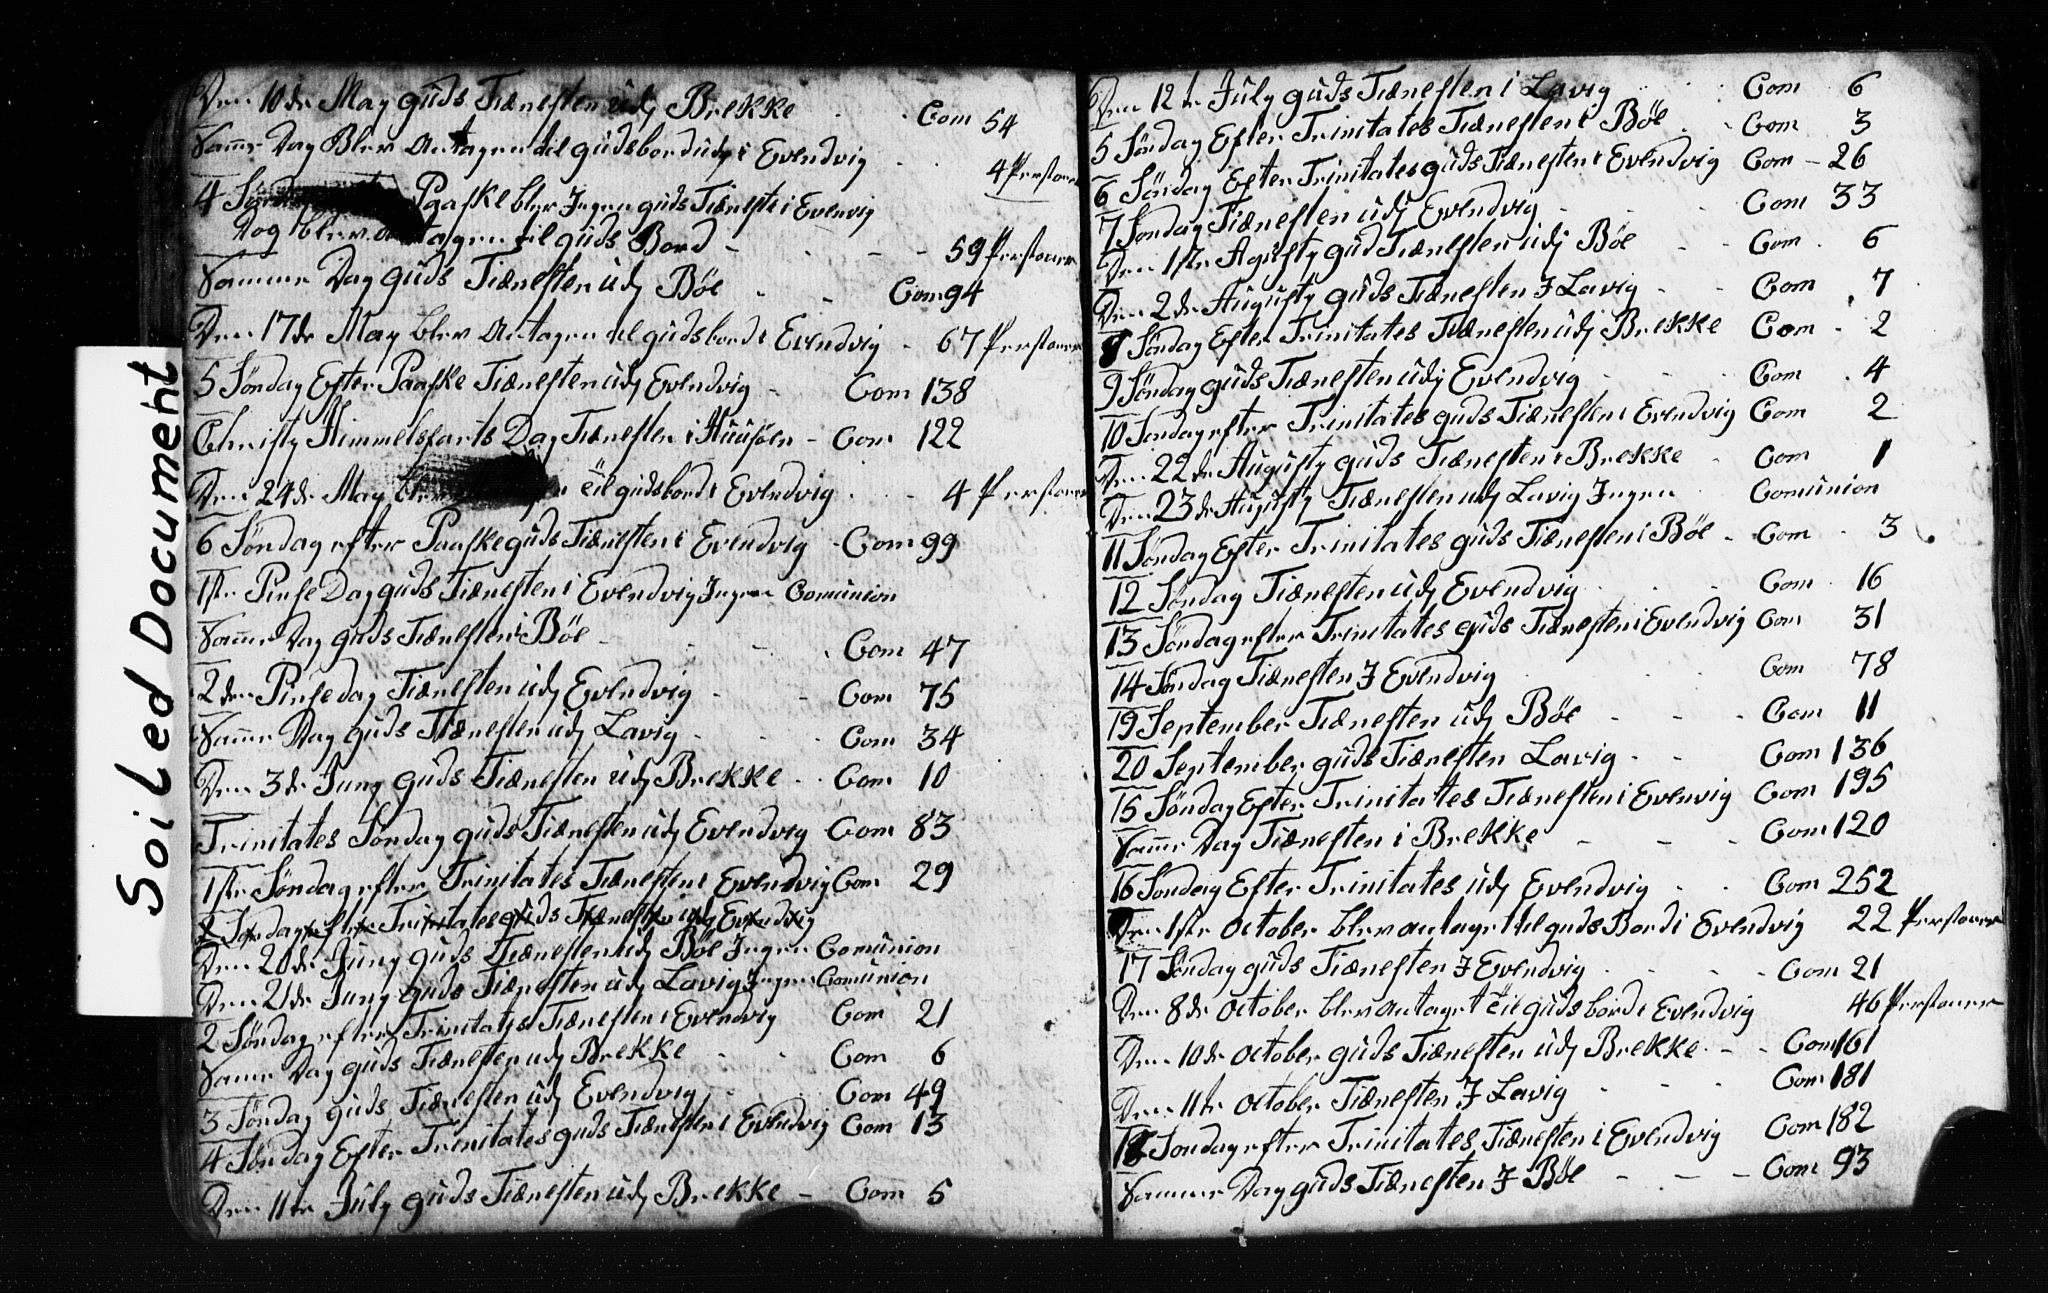 Den 10de May guds Tiænesten udj Brekke Com 54
Samme Dag Blev Antagen til gudsbord udj Evendvig 4 Perstoner
4 Paaske blev Ingen guds Tiæneste i Evenvig
Dog blev tagen til guds Bord 59 Perstoner
Sammer Dag guds Tiænesten udj Böe Com 94
Den 17de May blev Antagen til gudsbord i Evendvig 67 Perstoner
5 Söndag Efter Paaske Tiænesten udj Evendvig Com 138
Christy Himmelsfarts Dag Tiænesten i Huusöen Com 122
Den 24de May blev til gudsbord i Evendvig 4 Perstoner
6 Söndag efter Paaske guds Tiænesten i Evendvig Com 99
1ste Pinse Dag guds Tiænesten i Evendvig Ingen Comunion
Samme Dag guds Tiænesten i Böe Com 47
2den Pinsedag Tiænesten udj Evendvig Com 75
Samme Dag guds Tiænesten udj Lavig Com 34
Den 3de Juny guds Tiænesten udj Brekke Com 10
Trinitates Söndag guds Tiænesten udj Evendvig Com 83
1ste Söndag efter Trinitates Tiænesten i Evendvig Com 29
2 Söndag efter Trinitates guds Tiænesten udj Evendvig
Den 20de Juny guds Tiænesten udj Böe Ingen Comunion
Den 21de Juny guds Tiænesten udj Lavig Ingen Comunion
2 Söndag efter Trinitatis Tiænesten i Evendvig Com 21
Samme Dag guds Tiænesten udj Brekke Com 6
3 Söndag guds Tiænesten udj Evendvig Com 49
4 Söndag Efter Trinitates guds Tiænesten i Evendvig Com 13
Den 11te July guds Tiænesten udj Brekke Com 5
Den 12te July guds Tiænesten i Lavig Com 6
5 Söndag Efter Trinitates Tiænesten i Böe Com 3
6 Söndag Efter Trinitates guds Tiænesten i Evendvig Com 26
7 Söndag Tiænesten udj Evendvig Com 33
Den 1ste Agusty gud Tiænesten udj Böe Com 6
Den 2de Augusty guds Tiænesten I Lavig Com 7
8 Söndag Efter Trinitates Tiænesten udj Brekke Com 2
9 Söndag guds Tiænesten udj Evendvig Com 4
10 Söndag efter Trinitates guds Tiænesten i Evendvig Com 2
Den 22de Augusty guds Tiænesten i Brekke Com 1
Den 23de Augusty Tiænesten udj Lavig Ingen Comunion
11 Söndag Efter Trinitates guds Tiænesten i Böe Com 3
12 Söndag Tiænesten udj Evendvig Com 16
13 Söndag efter Trinitates guds Tiænesten i Evendvig Com 31
14 Söndag Tiænesten I Evendvig Com 78
19 September Tiænesten udj Böe Com 11
20 September guds Tiænesten Lavig Com 136
15 Söndag Efter Trinitates Tiænesten i Evenvig Com 195
Samme Dag Tiænesten i Brekke Com 120
16 Söndag Efter Trinitates udj Evendvig Com 252
Den 1ste October blev antaget til guds Bord i Evendvig 22 Perstoner
17 Söndag guds Tiænesten I Evendvig Com 21
Den 8de October blev antaget til guds bord i Evendvig 46 Perstoner
Den 10de October guds Tiænesten udj Brekke Com 161
Den 11te October Tiænesten I Lavig Com 181
18 Söndag efter Trinitates Tiænesten i Evendvig Com 182
Sammer Dag guds Tiænesten I Böe Com 93
Soiled Document